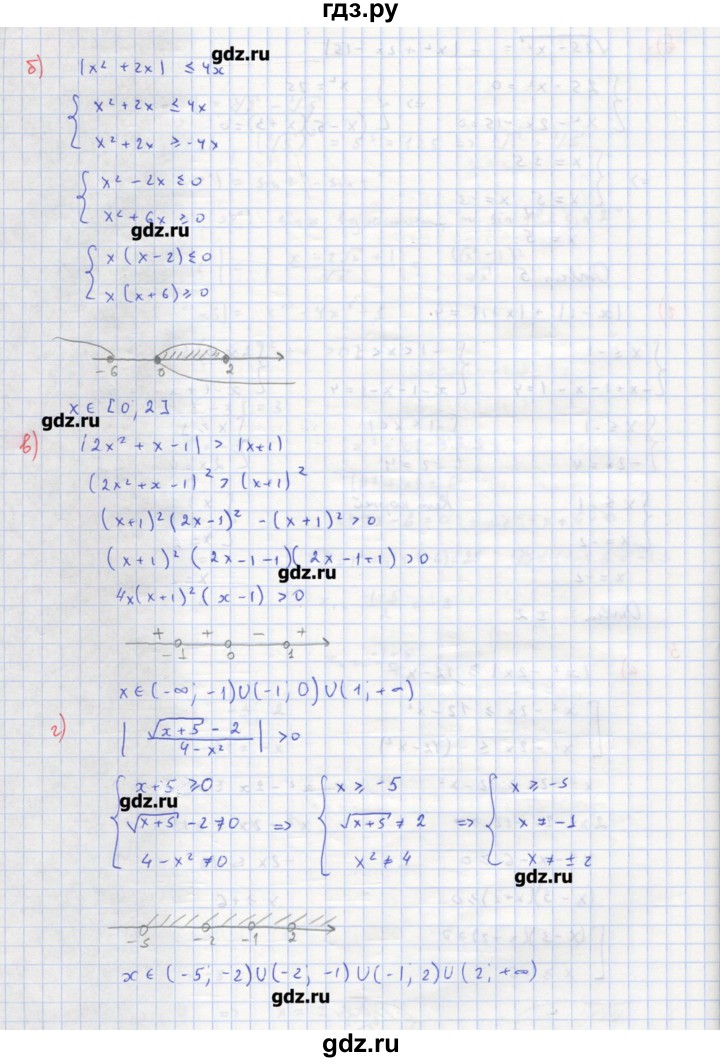 гдз.ру
gdz.ru
б) |x² + 2x| ≤ 4x
{ x² + 2x ≤ 4x
x² + 2x ≥ -4x
{ x² - 2x ≤ 0
x² + 6x ≥ 0
gdz.ru
{ x (x-2) ≤ 0
x (x+6) ≥ 0
-6 0 2
x ∈ [0; 2]
gdz.ru
в) |2x² + x - 1| > |x+1|
(2x² + x - 1)² > (x+1)²
(x+1)² (2x-1)² - (x+1)² > 0
(x+1)² (2x-1-1)(2x-1+1) > 0
gdz.ru
4x(x+1)² (x-1) > 0
+ + - +
-1 0 1
x ∈ (-∞; -1)∪(-1; 0)∪(1; +∞)
г) | √(x+5) - 2 / 4-x² | > 0
{ x+5 ≥ 0
√(x+5) - 2 ≠ 0
4 - x² ≠ 0 => { x ≥ -5
√(x+5) ≠ 2
x² ≠ 4 => { x ≥ -5
x ≠ -1
x ≠ ± 2
gdz.ru
gdz.ru
-5 -2 -1 2
x ∈ (-5; -2)∪(-2; -1)∪(-1; 2)∪(2; +∞)
gdz.ru
гдз.ру